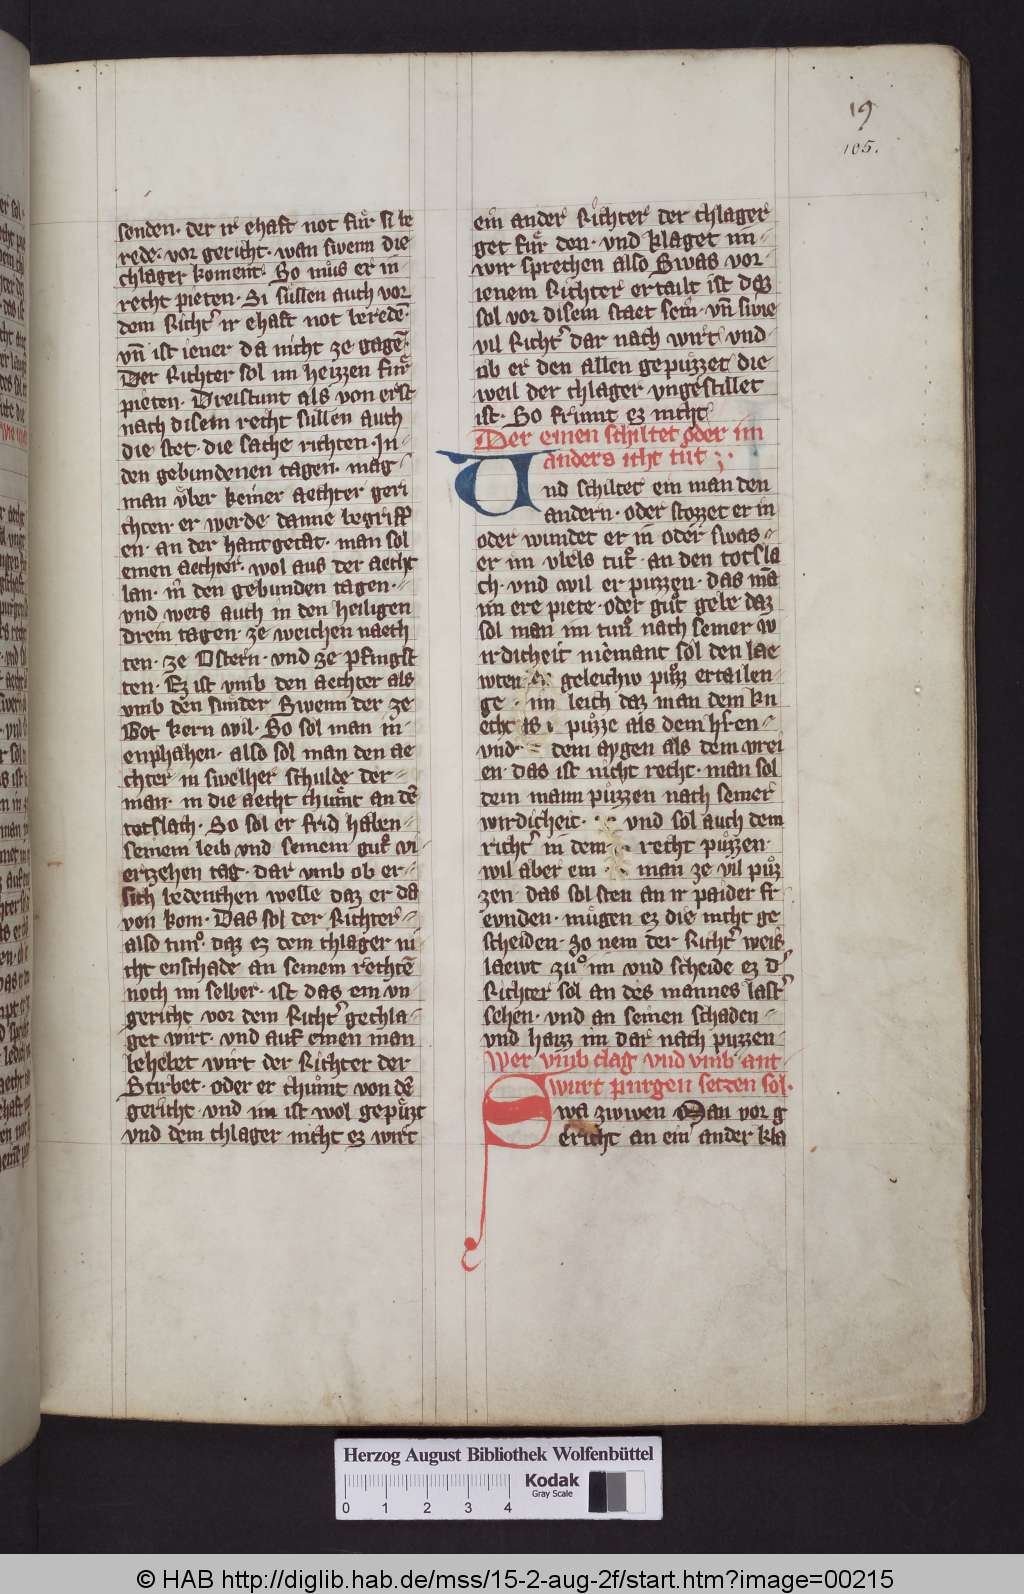 19
105.
senden· der ir ehaft not fuͤr si be
rede· vor gericht· wan swenn die
chlager koment· So mus er in
recht pieten· Si sullen auch vor
dem Richt͛ ir ehaft not bereden̄·
vn̄ ist iener da nicht ze gagē·
Der Richter sol im heizzen fuͤr
pieten· Dreistunt als von erst
nach disem recht sullen auch
die stet· die sache richten· In⸗
den gebundenen tagen· mag⸗
man vͤber keiner aechter geri
chten· er werde danne begriff
en· an der hantgetat· man sol
einen aechter· wol aus der aecht
lan· in den gebunden tagen·
vnd wers auch in den heiligen
drein tagen· ze weichen naech
ten· ze Ostern· vnd ze pfingst
ten· Ez ist vmb den aechter als
vmb den sunder Swenn der ze
Got kern wil· So sol man in⸗
enphahen· also sol man den ae
chter in swelher schulde der⸗
man· in die aecht chuͤmt an dē
totslach· So sol er frid haben⸗
seinem leib vnd seinem gut vi
ertzehen tag· dar vmb ob er⸗
sich bedenchen welle daz er da
von kom· Das sol der Richter⸗
also tun· daz ez dem chlager ni
cht enschade an seinem rechtē
noch im selber· ist das ein vn
gericht vor dem Richt͛ gechla⸗
get wirt· vnd auf einen man
behebet wirt der Richter der
Stirbet· oder er chuͦmt von dē
gericht· vnd im ist wol gepuͤzt
vnd dem chlager nicht ez wirt
ein ander Richter der chlager
get fuͤr den· vnd klaget im⸗
wir sprechen also Swas vor⸗
ienem Richter ertailt ist daz
sol vor disem staet sein· vn̄ swie
vil Richt͛ dar nach wirt vnd
ob er den allen gepuͤzzet die
weil der chlager vngestillet
ist· So frumt ez nicht
Der einen schiltet oder im
anders icht tuͦt
Vnd schiltet ein man den
andern· oder stozzet er in
oder wundet er in oder swas⸗
er im vbels tut· an den totsla
ch· vnd wil er puzzen· das mā
im ere piete· oder guͦt gebe daz
sol man im tun nach seiner w
irdicheit niemant sol den lae
wten geleichiv puͦzz ertailen⸗
ge im leich daz man dem kn
echt puͦzze als dem hren⸗
vnd dem aygen als dem vrei
en· das ist nicht recht· man sol
dem mann puͤzzen nach seiner
wirdicheit· vnd sol auch dem
richt͛ in dem recht puͤzzen·
wil aber ein man ze vil puͦz
zen· das sol sten an ir paider fr
evnden· muͤgen ez die nicht ge
scheiden· So nem der Richt͛ weis
laewt zuͦ im vnd scheide ez d͛
Richter sol an des mannes last͛
sehen· vnd an seinen schaden⸗
vnd haizz im dar nach puzzen⸗
Wer vmb clag vnd vmb ant⸗
wurt purgen setzen sol·
Swa zwen Man vor g
ericht an ein ander kla
Herzog August Bibliothek Wolfenbüttel
Kodak
Gray Scale
0 1 2 3 4
© HAB http://diglib.hab.de/mss/15-2-aug-2f/start.htm?image=00215